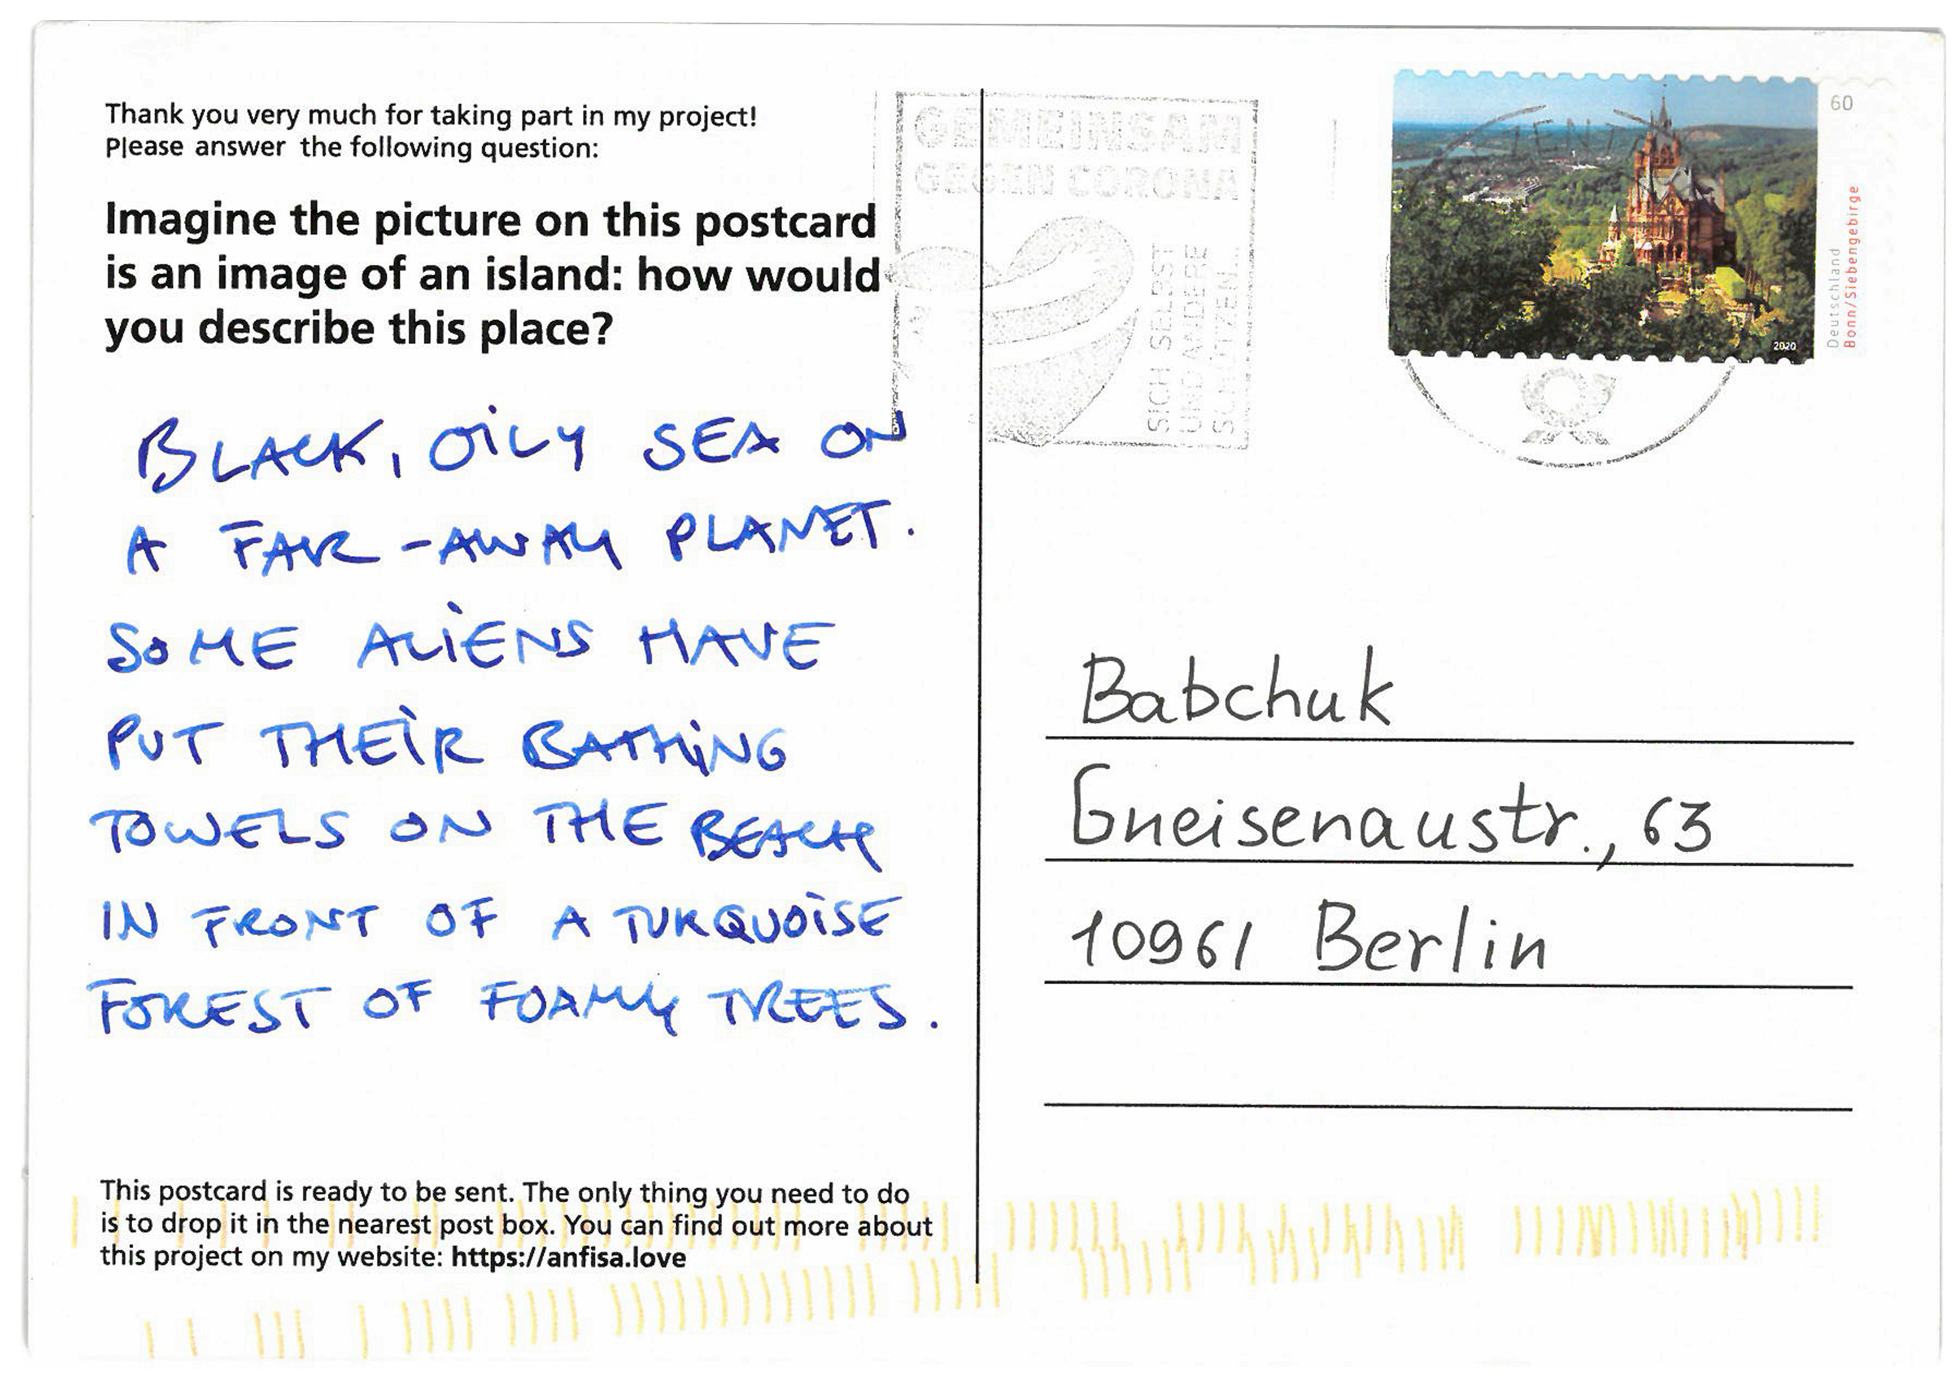 Thank you very much for taking part in my project!
Please answer the following question:
Imagine the picture on this postcard
is an image of an island: how would
you describe this place?
BLACK, OILY SEA ON
A FAR-AWAY PLANET.
SOME ALIENS HAVE
PUT THEIR BATHING
TOWELS ON THE BEACH
IN FRONT OF A TURQUOISE
FOREST OF FOAMY TREES.
This postcard is ready to be sent. The only thing you need to do
is to drop it in the nearest post box. You can find out more about
this project on my website: https://anfisa.love
GEMEINSAM
GEGEN CORONA
SICH SELBST
UND ANDERE
SCHÜTZEN...
60
Deutschland
Bonn/Siebengebirge
2020
Babchuk
Gneisenaustr., 63
10961 Berlin